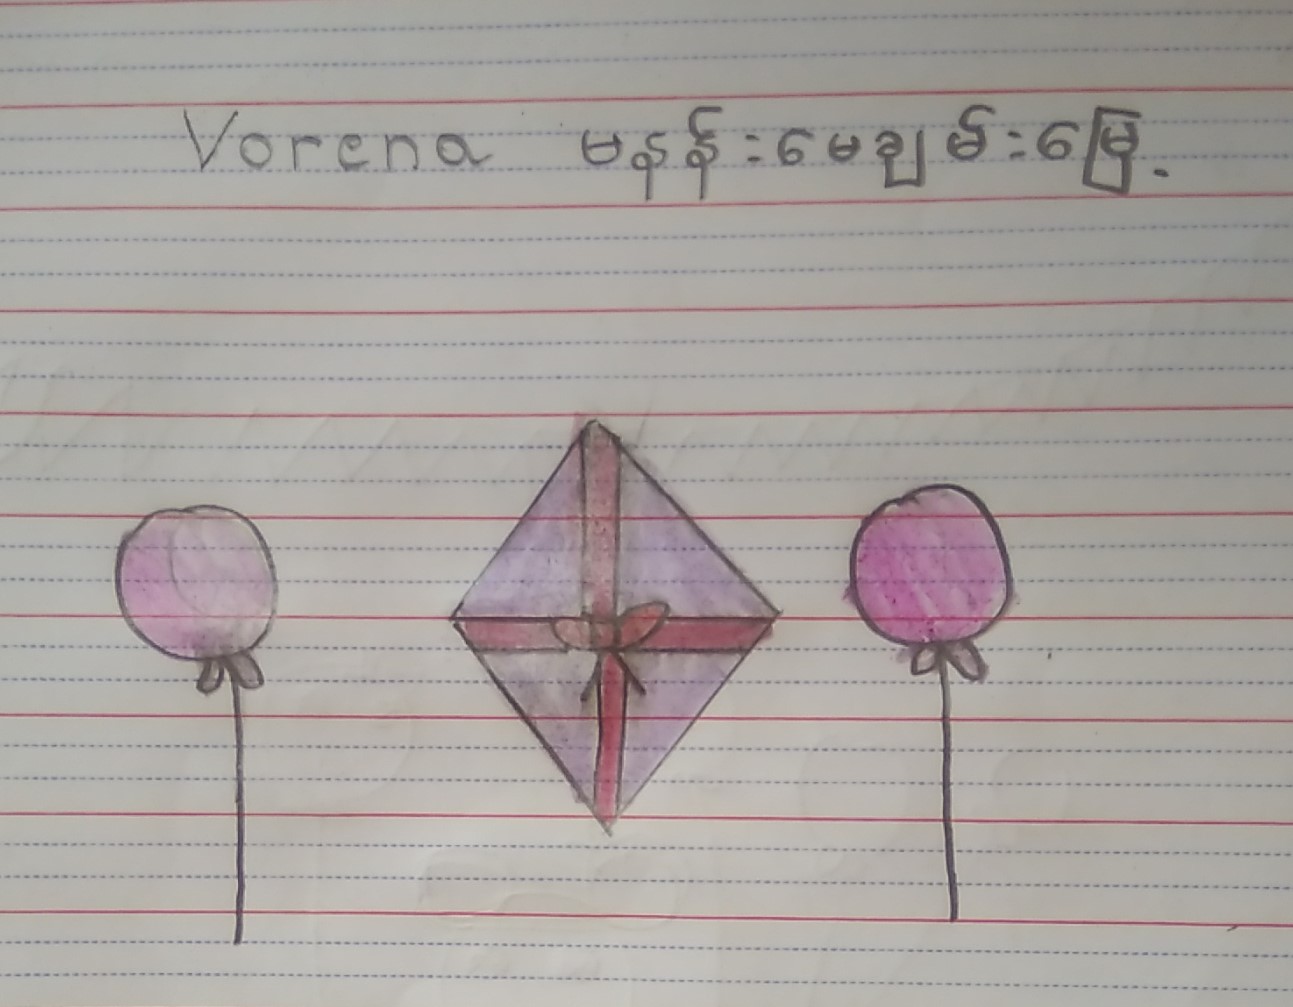 Vorena မနန်းမေချမ်းမြေ့